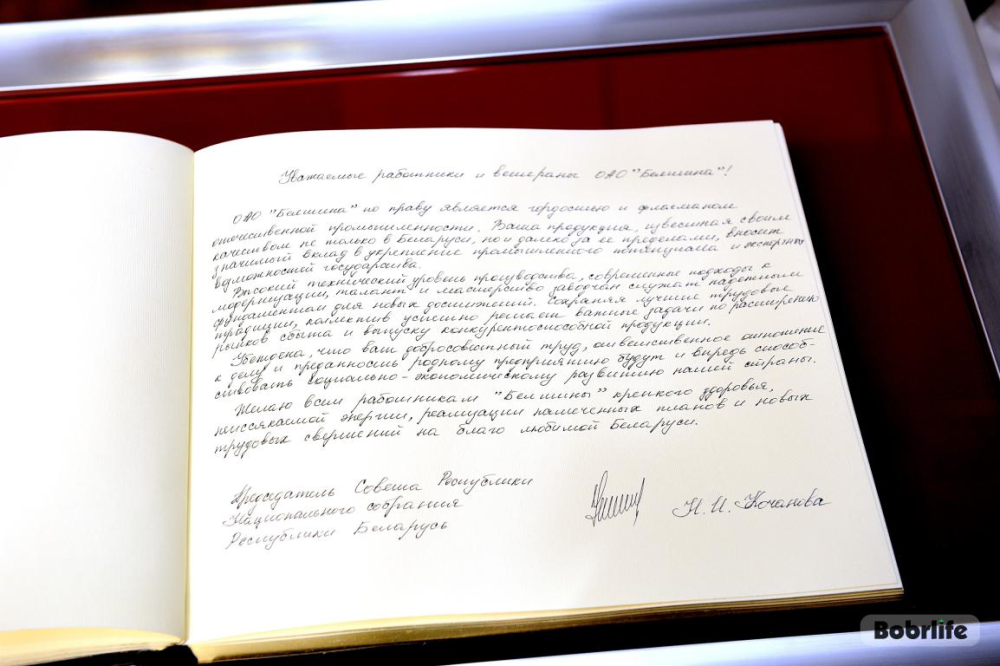 Уважаемые работники и ветераны ОАО "Белшина"!
ОАО "Белшина" по праву является гордостью и флагманом
отечественной промышленности. Ваша продукция, известная своим
качеством не только в Беларуси, но и далеко за ее пределами, вносит
значимый вклад в укрепление промышленного потенциала и экспортных
возможностей государства.
Высокий технический уровень производства, современные подходы к
модернизации, талант и мастерство заводчан служат надежным
фундаментом для новых достижений. Сохраняя лучшие трудовые
традиции, коллектив успешно решает важные задачи по расширению
рынков сбыта и выпуску конкурентоспособной продукции.
Убеждена, что ваш добросовестный труд, ответственное отношение
к делу и преданность родному предприятию будут и впредь способ-
ствовать социально-экономическому развитию нашей страны.
Желаю всем работникам "Белшины" крепкого здоровья,
неиссякаемой энергии, реализации намеченных планов и новых
трудовых свершений на благо любимой Беларуси.
Председатель Совета Республики
Национального собрания
Республики Беларусь
Н.И. Кочанова
Bobrlife